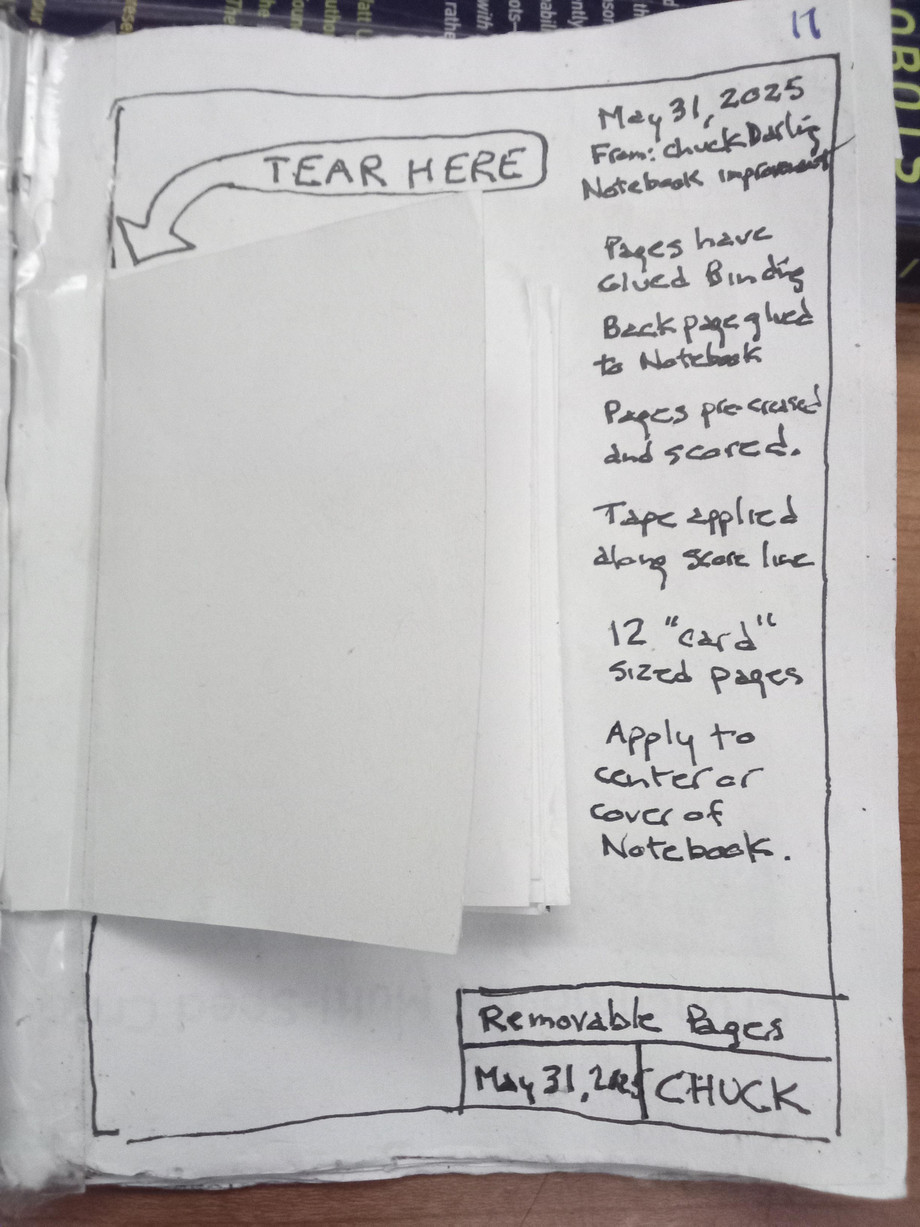 17
TEAR HERE
May 31, 2025
From: Chuck Darling
Notebook Improvement
Pages have
Glued Binding
Back page glued
to Notebook
Pages pre-creased
and scored.
Tape applied
along score line
12 "card"
sized pages
Apply to
center or
cover of
Notebook.
Removable Pages
May 31, 2025
CHUCK